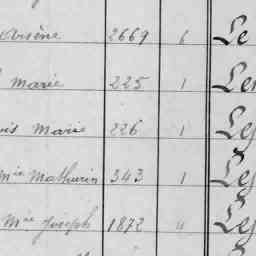 Arsène 2669 6 Le
Marie 225 1 Le
is Marie 226 1 Le
Mie Mathurin 343 1 Le
Mie Joseph 1872 " Le